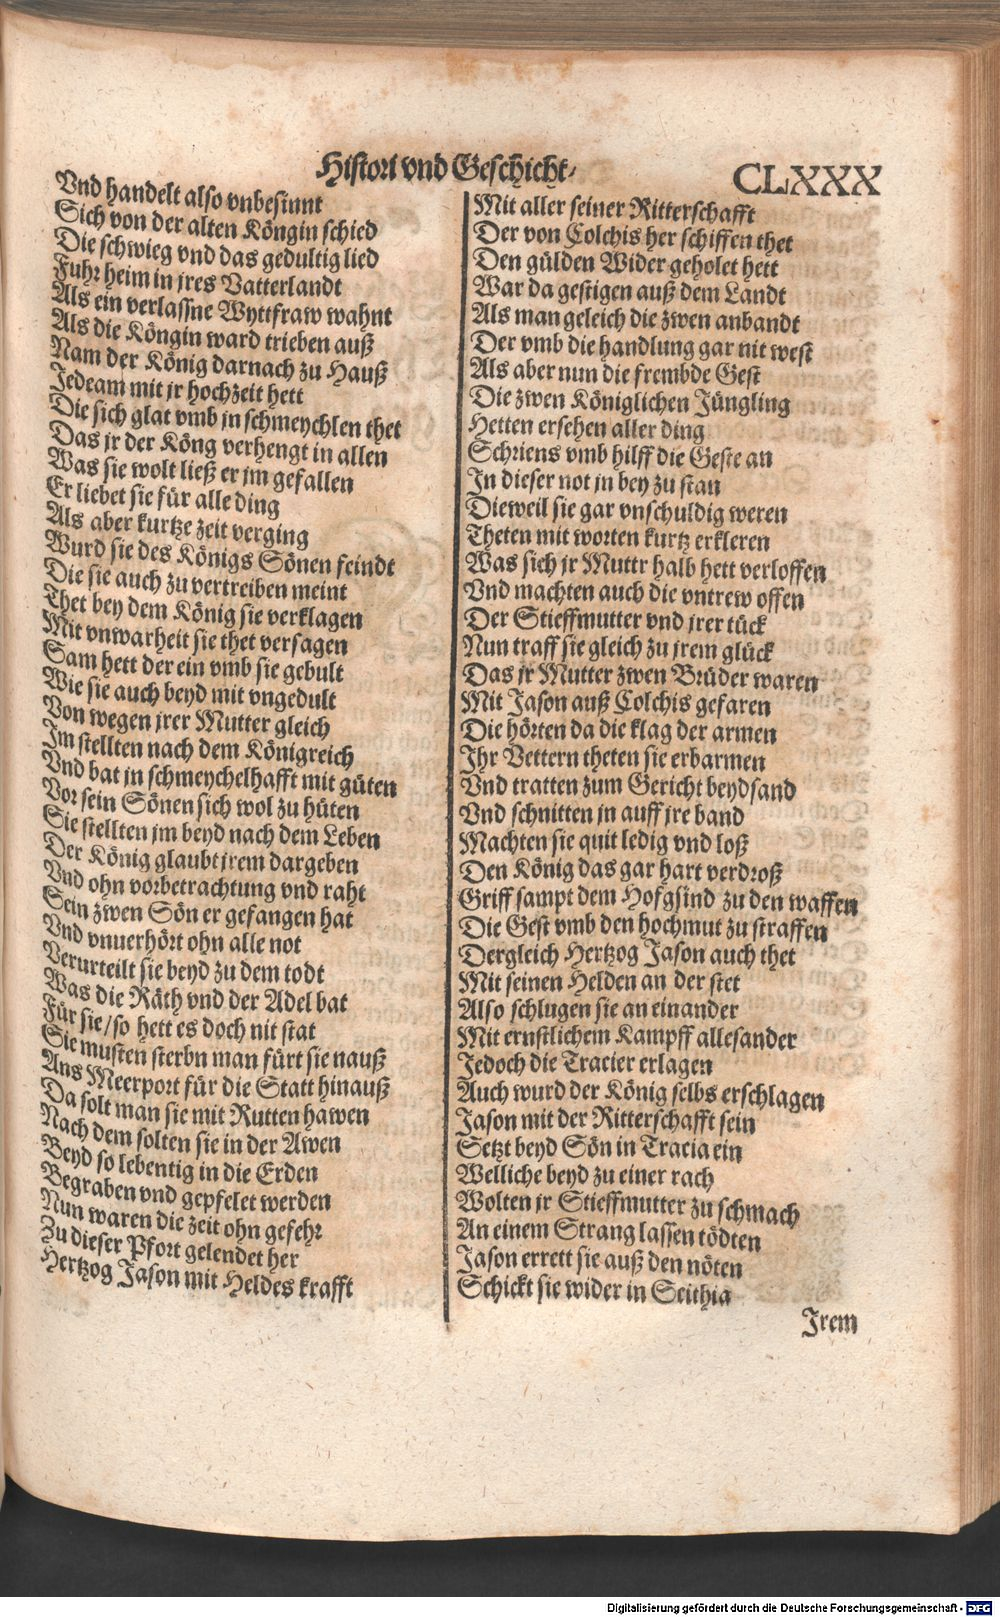 Histori vnd Geschicht/
CLXXX
Vnd handelt also vnbesinnt
Sich von der alten Köngin schied
Die schwieg vnd das gedultig lied
Fuhr heim in jres Vatterlandt
Als ein verlassne Wyttfraw wahnt
Als die Köngin ward trieben auß
Nam der König darnach zu Hauß
Jedeam mit jr hochzeit hett
Die sich glat vmb jn schmeychlen thet
Das jr der Köng verhengt in allen
Was sie wolt ließ er jm gefallen
Er liebet sie für alle ding
Als aber kurtze zeit verging
Wurd sie des Königs Sönen feindt
Die sie auch zu vertreiben meint
Thet bey dem König sie verklagen
Mit vnwarheit sie thet versagen
Sam hett der ein vmb sie gebult
Wie sie auch beyd mit vngedult
Von wegen jrer Mutter gleich
Im stellten nach dem Königreich
Vnd bat jn schmeychelhafft mit güten
Vor sein Sönen sich wol zu hüten
Sie stellten jm beyd nach dem Leben
Der König glaubt jrem dargeben
Vnd ohn vorbetrachtung vnd raht
Sein zwen Sön er gefangen hat
Vnd vnuerhört ohn alle not
Verurteilt sie beyd zu dem todt
Was die Räth vnd der Adel bat
Für sie/so hett es doch nit stat
Sie musten sterbn man fürt sie nauß
Ans Meerport für die Statt hinauß
Da solt man sie mit Rutten hawen
Nach dem solten sie in der Awen
Beyd so lebentig in die Erden
Begraben vnd gepfelet werden
Nun waren die zeit ohn gefehr
Zu dieser Pfort gelendet her
Hertzog Jason mit Heldes krafft
Mit aller seiner Ritterschafft
Der von Colchis her schiffen thet
Den gülden Wider geholet hett
War da gestigen auß dem Landt
Als man geleich die zwen anbandt
Der vmb die handlung gar nit west
Als aber nun die frembde Gest
Die zwen Königlichen Jüngling
Hetten ersehen aller ding
Schriens vmb hilff die Geste an
In dieser not jn bey zu stan
Dieweil sie gar vnschuldig weren
Theten mit worten kurtz erkleren
Was sich jr Muttr halb hett verloffen
Vnd machten auch die vntrew offen
Der Stieffmutter vnd jrer tück
Nun traff sie gleich zu jrem glück
Das jr Mutter zwen Brüder waren
Mit Jason auß Colchis gefaren
Die hörten da die klag der armen
Ihr Vettern theten sie erbarmen
Vnd tratten zum Gericht beydsand
Vnd schnitten jn auff jre band
Machten sie quit ledig vnd loß
Den König das gar hart verdroß
Griff sampt dem Hofgsind zu den waffen
Die Gest vmb den hochmut zu straffen
Dergleich Hertzog Jason auch thet
Mit seinen Helden an der stet
Also schlugen sie an einander
Mit ernstlichem Kampff allesander
Jedoch die Tracier erlagen
Auch wurd der König selbs erschlagen
Jason mit der Ritterschafft sein
Setzt beyd Sön in Tracia ein
Welliche beyd zu einer rach
Wolten jr Stieffmutter zu schmach
An einem Strang lassen tödten
Jason errett sie auß den nöten
Schickt sie wider in Scithia
Jrem
Digitalisierung gefördert durch die Deutsche Forschungsgemeinschaft - DFG